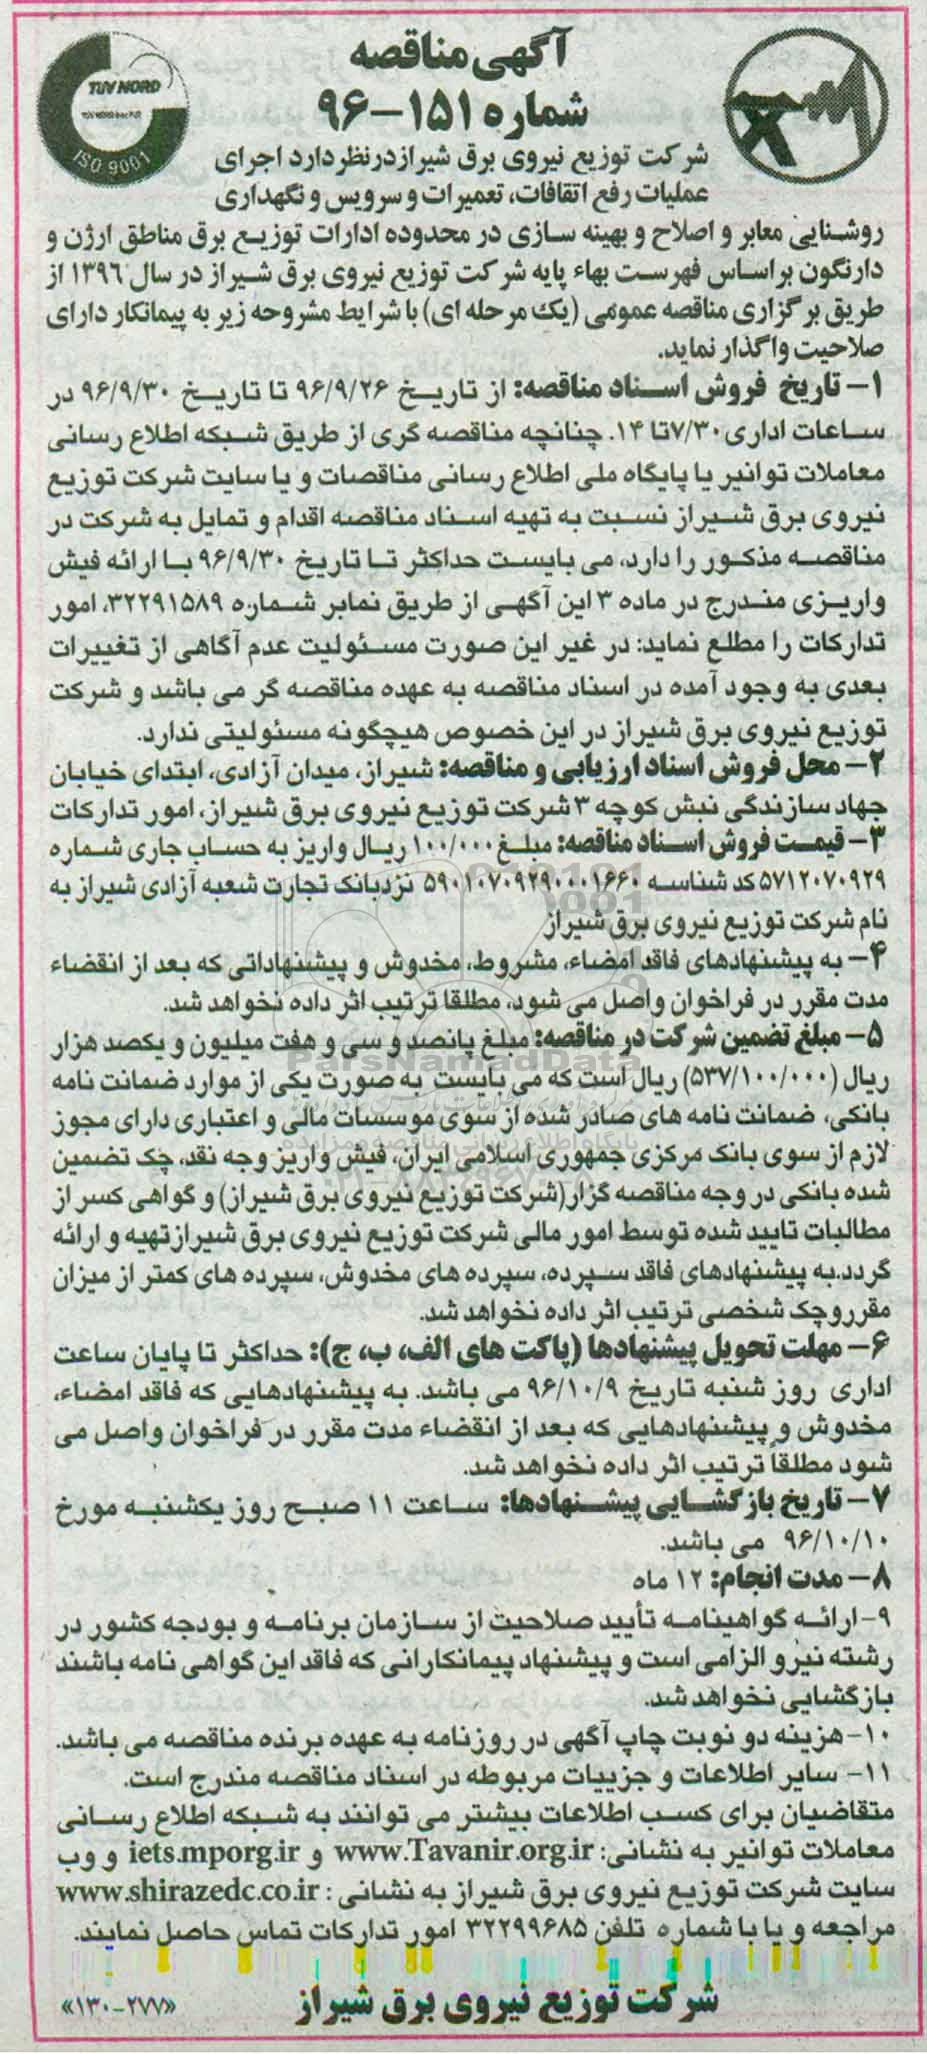 آگهی مناقصه
شماره ۱۵۱-۹۶
TUV NORD
ISO 9001
شرکت توزیع نیروی برق شیراز در نظر دارد اجرای
عملیات رفع اتفاقات، تعمیرات و سرویس و نگهداری
روشنایی معابر و اصلاح و بهینه سازی در محدوده ادارات توزیع برق مناطق ارژن و
دارنگون براساس فهرست بهاء پایه شرکت توزیع نیروی برق شیراز در سال ۱۳۹۶ از
طریق برگزاری مناقصه عمومی (یک مرحله ای) با شرایط مشروحه زیر به پیمانکار دارای
صلاحیت واگذار نماید.
۱- تاریخ فروش اسناد مناقصه: از تاریخ ۹۶/۹/۲۶ تا تاریخ ۹۶/۹/۳۰ در
ساعات اداری ۷/۳۰ تا ۱۴. چنانچه مناقصه گری از طریق شبکه اطلاع رسانی
معاملات توانیر یا پایگاه ملی اطلاع رسانی مناقصات و یا سایت شرکت توزیع
نیروی برق شیراز نسبت به تهیه اسناد مناقصه اقدام و تمایل به شرکت در
مناقصه مذکور را دارد، می بایست حداکثر تا تاریخ ۹۶/۹/۳۰ با ارائه فیش
واریزی مندرج در ماده ۳ این آگهی از طریق نمابر شماره ۳۲۲۹۱۵۸۹، امور
تدارکات را مطلع نماید: در غیر این صورت مسئولیت عدم آگاهی از تغییرات
بعدی به وجود آمده در اسناد مناقصه به عهده مناقصه گر می باشد و شرکت
توزیع نیروی برق شیراز در این خصوص هیچگونه مسئولیتی ندارد.
۲- محل فروش اسناد ارزیابی و مناقصه: شیراز، میدان آزادی، ابتدای خیابان
جهاد سازندگی نبش کوچه ۳ شرکت توزیع نیروی برق شیراز، امور تدارکات
۳- قیمت فروش اسناد مناقصه: مبلغ ۱۰۰/۰۰۰ ریال واریز به حساب جاری شماره
۵۷۱۲۰۷۰۹۲۹ کد شناسه ۵۹۰۱۰۷۰۹۲۹۰۰۰۱۶۶۰ نزد بانک تجارت شعبه آزادی شیراز به
نام شرکت توزیع نیروی برق شیراز
۴- به پیشنهادهای فاقد امضاء، مشروط، مخدوش و پیشنهاداتی که بعد از انقضاء
مدت مقرر در فراخوان واصل می شود، مطلقا ترتیب اثر داده نخواهد شد.
۵- مبلغ تضمین شرکت در مناقصه: مبلغ پانصد و سی و هفت میلیون و یکصد هزار
ریال (۵۳۷/۱۰۰/۰۰۰) ریال است که می بایست به صورت یکی از موارد ضمانت نامه
بانکی، ضمانت نامه های صادر شده از سوی موسسات مالی و اعتباری دارای مجوز
لازم از سوی بانک مرکزی جمهوری اسلامی ایران، فیش واریز وجه نقد، چک تضمین
شده بانکی در وجه مناقصه گزار (شرکت توزیع نیروی برق شیراز) و گواهی کسر از
مطالبات تایید شده توسط امور مالی شرکت توزیع نیروی برق شیراز تهیه و ارائه
گردد. به پیشنهادهای فاقد سپرده، سپرده های مخدوش، سپرده های کمتر از میزان
مقرر و چک شخصی ترتیب اثر داده نخواهد شد.
۶- مهلت تحویل پیشنهادها (پاکت های الف، ب، ج): حداکثر تا پایان ساعت
اداری روز شنبه تاریخ ۹۶/۱۰/۹ می باشد. به پیشنهادهایی که فاقد امضاء،
مخدوش و پیشنهادهایی که بعد از انقضاء مدت مقرر در فراخوان واصل می
شود مطلقاً ترتیب اثر داده نخواهد شد.
۷- تاریخ بازگشایی پیشنهادها: ساعت ۱۱ صبح روز یکشنبه مورخ
۹۶/۱۰/۱۰ می باشد.
۸- مدت انجام: ۱۲ ماه
۹- ارائه گواهینامه تأیید صلاحیت از سازمان برنامه و بودجه کشور در
رشته نیرو الزامی است و پیشنهاد پیمانکارانی که فاقد این گواهی نامه باشند
بازگشایی نخواهد شد.
۱۰- هزینه دو نوبت چاپ آگهی در روزنامه به عهده برنده مناقصه می باشد.
۱۱- سایر اطلاعات و جزییات مربوطه در اسناد مناقصه مندرج است.
متقاضیان برای کسب اطلاعات بیشتر می توانند به شبکه اطلاع رسانی
معاملات توانیر به نشانی: www.Tavanir.org.ir و iets.mporg.ir و وب
سایت شرکت توزیع نیروی برق شیراز به نشانی: www.shirazedc.co.ir
مراجعه و یا با شماره تلفن ۳۲۲۹۹۶۸۵ امور تدارکات تماس حاصل نمایند.
شرکت توزیع نیروی برق شیراز
«۱۳۰-۲۷۷»
ParsNamadData
پایگاه اطلاع رسانی مناقصه و مزایده